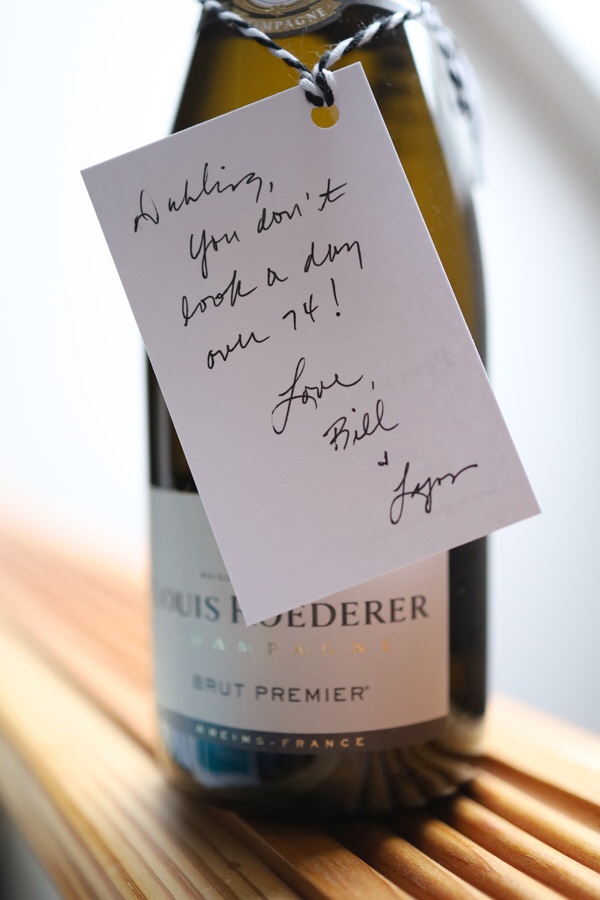 CHAMPAGNE
Dahling,
You don't
look a day
over 74!
Love,
Bill
&
LOUIS ROEDERER
CHAMPAGNE
BRUT PREMIER
REIMS-FRANCE